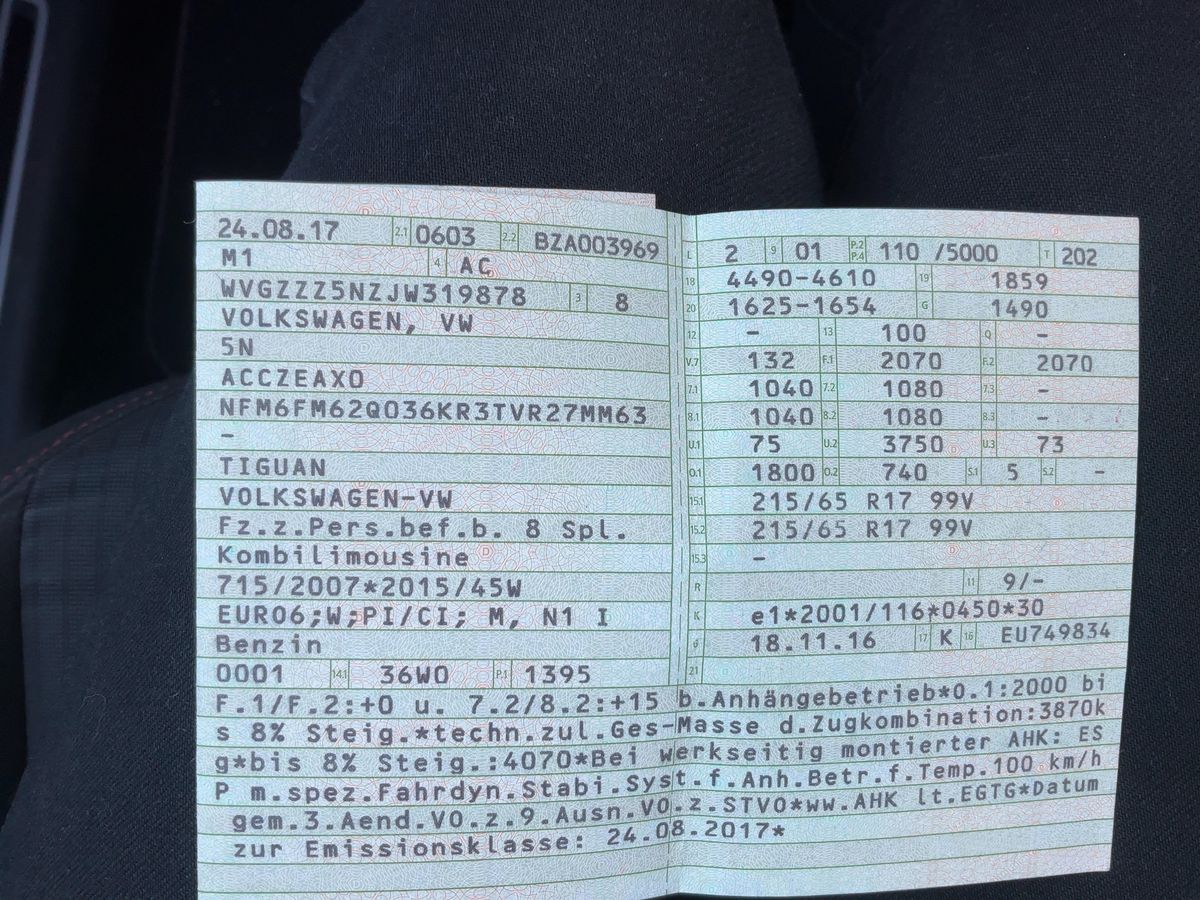 24.08.17 2.1 0603 2.2 BZA003969
M1 4 AC
WVGZZZ5NZJW319878 3 8
VOLKSWAGEN, VW
5N
ACCZEAX0
NFM6FM62Q036KR3TVR27MM63
–
TIGUAN
VOLKSWAGEN-VW
Fz.z.Pers.bef.b. 8 Spl.
Kombilimousine
715/2007*2015/45W
EURO6;W;PI/CI; M, N1 I
Benzin
0001 14.1 36W0 P.1 1395
L 2 9 01 P.2 P.4 110 /5000 T 202
18 4490-4610 19 1859
20 1625-1654 G 1490
12 – 13 100 Q –
V.7 132 F.1 2070 F.2 2070
7.1 1040 7.2 1080 7.3 –
8.1 1040 8.2 1080 8.3 –
U.1 75 U.2 3750 U.3 73
O.1 1800 O.2 740 S.1 5 S.2 –
15.1 215/65 R17 99V
15.2 215/65 R17 99V
15.3 –
R 11 9/-
K e1*2001/116*0450*30
6 18.11.16 17 K 16 EU749834
21
F.1/F.2:+0 u. 7.2/8.2:+15 b.Anhängebetrieb*O.1:2000 bi
s 8% Steig.*techn.zul.Ges-Masse d.Zugkombination:3870k
g*bis 8% Steig.:4070*Bei werkseitig montierter AHK: ES
P m.spez.Fahrdyn.Stabi.Syst.f.Anh.Betr.f.Temp.100 km/h
gem.3.Aend.VO.z.9.Ausn.VO.z.STVO*ww.AHK lt.EGTG*Datum
zur Emissionsklasse: 24.08.2017*